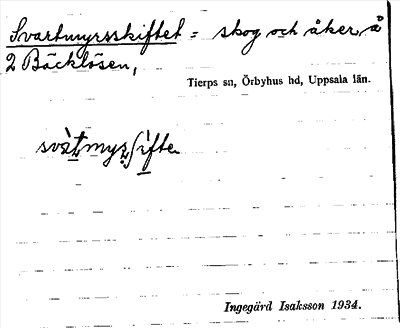 Svartmyrsskiftet = skog och åker å
2 Bäcklösen,
Tierps sn, Örbyhus hd, Uppsala län.
Ingegärd Isaksson 1934.